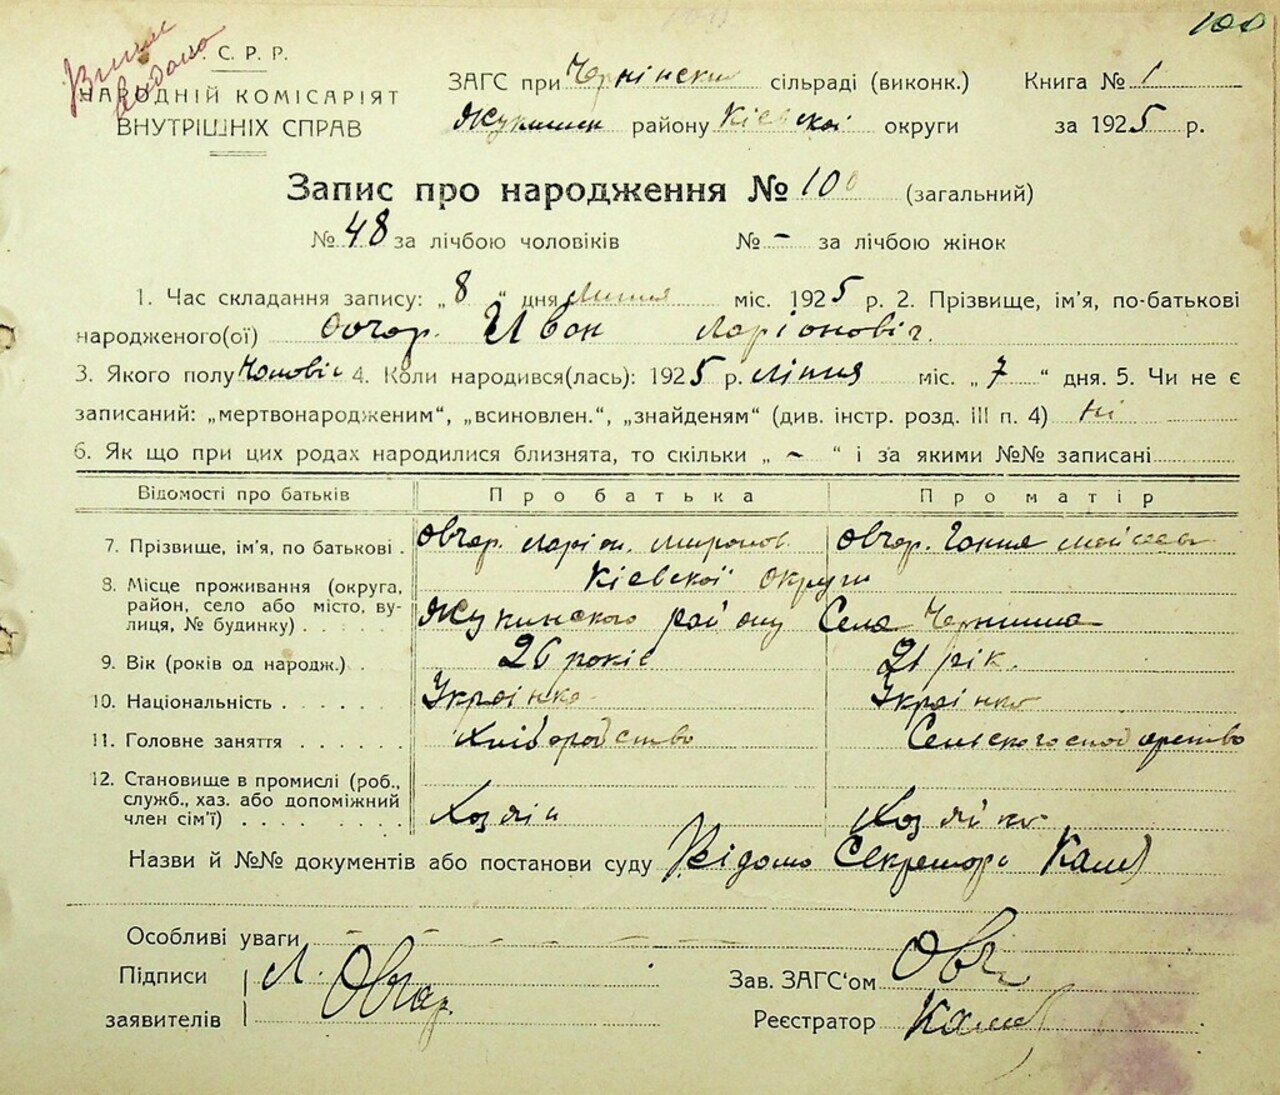 100
. С. Р. Р.
НАРОДНІЙ КОМІСАРІЯТ
ВНУТРІШНІХ СПРАВ
ЗАГС при Чернінски сільраді (виконк.) Книга № 1
району Кіевскоі округи за 1925 р.
Запис про народження № 100 (загальний)
№ 48 за лічбою чоловіків № - за лічбою жінок
1. Час складання запису: „ 8 “ дня Липня міс. 1925 р. 2. Прізвище, ім'я, по-батькові
народженого(ої) Овчар. Иван Ларіоновіч.
3. Якого полу Чоловіч 4. Коли народився(лась): 1925 р. ліпня міс. „ 7 “ дня. 5. Чи не є
записаний: „мертвонародженим“, „всиновлен.“, „знайденям“ (див. інстр. розд. III п. 4) Ні
6. Як що при цих родах народилися близнята, то скільки „ - “ і за якими №№ записані
Відомості про батьків Про батька Про матір
7. Прізвище, ім'я, по батькові . Овчар. Ларіон. Миронов. Овчар. Ганна Мойсеев
8. Місце проживання (округа, Кіевскоі округи
район, село або місто, ву-
лиця, № будинку) . . . . . Жукинского району Села Чернина
9. Вік (років од народж.) . 26 років 21 рік.
10. Національність . . . . . . Украінка Украінка
11. Головне заняття . . . . . . Хліборобство Сельского господарство
12. Становище в промислі (роб.,
служб., хаз. або допоміжний
член сім'ї) . . . . . . . . Хозяін Хозяйка
Назви й №№ документів або постанови суду Відомо Секретарю
Особливі уваги - - - - - -
Підписи Л. Овчар. Зав. ЗАГС'ом Овч
заявителів Реєстратор